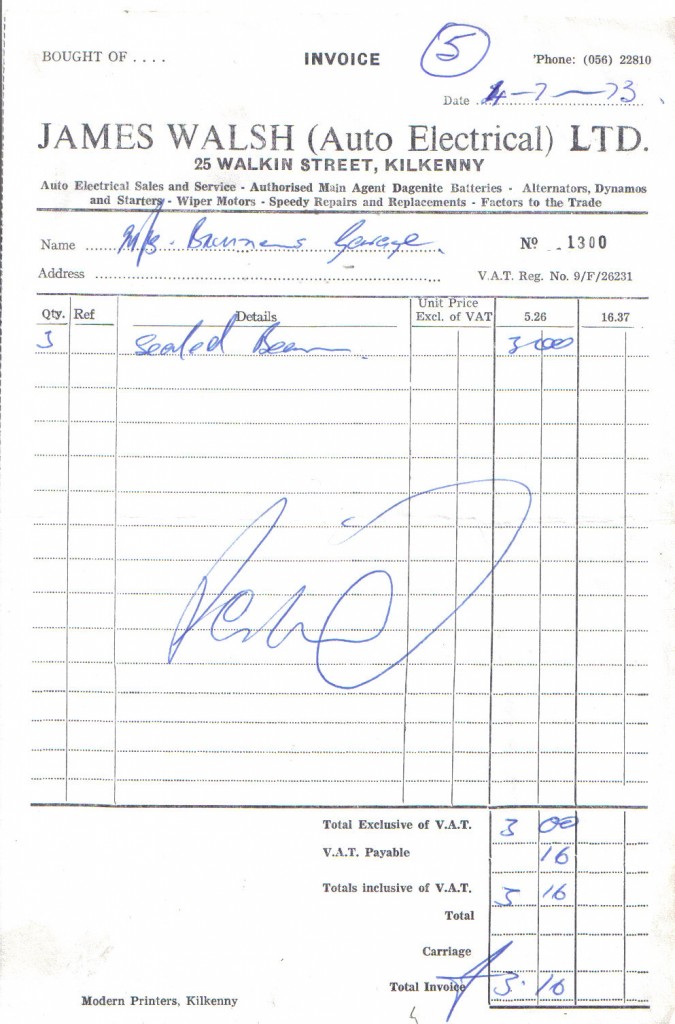 BOUGHT OF . . . . INVOICE 5 'Phone: (056) 22810
Date 4-7-73
JAMES WALSH (Auto Electrical) LTD.
25 WALKIN STREET, KILKENNY
Auto Electrical Sales and Service - Authorised Main Agent Dagenite Batteries - Alternators, Dynamos
and Starters - Wiper Motors - Speedy Repairs and Replacements - Factors to the Trade
Name M/s. Brennans Garage. Nº 1300
Address V.A.T. Reg. No. 9/F/26231
Qty. Ref Details Unit Price Excl. of VAT 5.26 16.37
3 Sealed Beam 3 00
Total Exclusive of V.A.T. 3 00
V.A.T. Payable 16
Totals inclusive of V.A.T. 3 16
Total
Carriage
Total Invoice 3.16
Modern Printers, Kilkenny